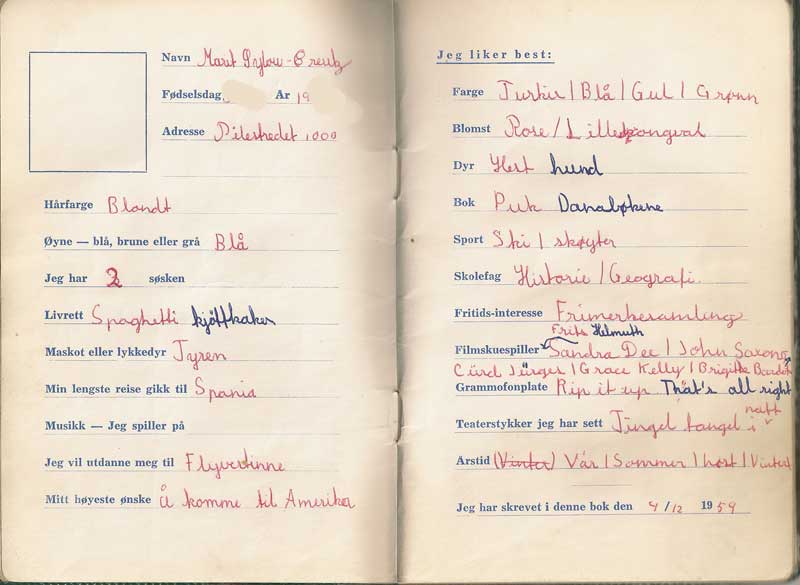 Navn Marit Sylow-Creutz
Fødselsdag Ar 19
Adresse Pilestredet 1000
Hårfarge Blondt
Øyne — blå, brune eller grå Blå
Jeg har 2 søsken
Livrett Spaghetti kjøttkaker
Maskot eller lykkedyr Tyren
Min lengste reise gikk til Spania
Musikk — Jeg spiller på
Jeg vil utdanne meg til Flyvertinne
Mitt høyeste ønske å komme til Amerika
Jeg liker best:
Farge Turkis / Blå / Gul / Grønn
Blomst Rose / Lillekongval
Dyr Hest hund
Bok Puk Danabøkene
Sport Ski / skøyter
Skolefag Historie / Geografi.
Fritids-interesse Frimerkesamling
Frits Helmuth
Filmskuespiller Sandra Dee / John Saxong
Cürd Jürges / Grace Kelly / Brigitte Bardot
Grammofonplate Rip it up That's all right
natt
Teaterstykker jeg har sett Jingel tangel i
Arstid (Vinter) Vår / Sommer / høst / Vinter
Jeg har skrevet i denne bok den 4/12 1959